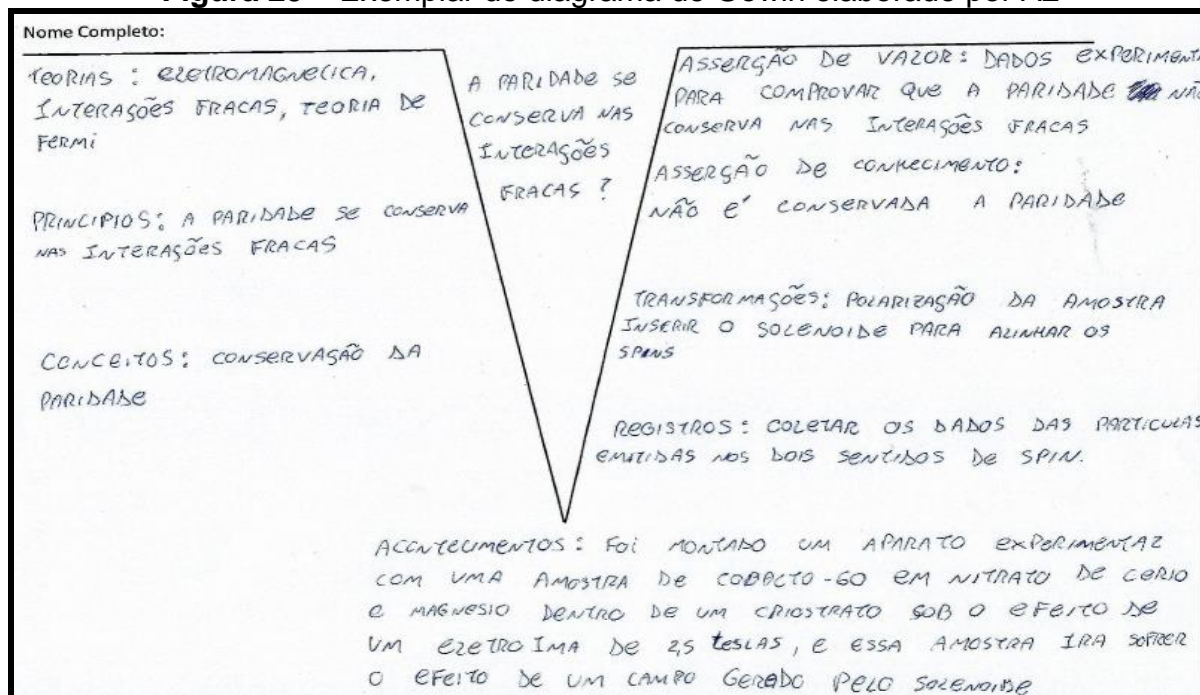 Nome Completo:
TEORIAS : ELETROMAGNETICA,
INTERAÇÕES FRACAS, TEORIA DE
FERMI
PRINCIPIOS: A PARIDADE SE CONSERVA
NAS INTERAÇÕES FRACAS
CONCEITOS: CONSERVAÇÃO DA
PARIDADE
A PARIDADE SE
CONSERVA NAS
INTERAÇÕES
FRACAS ?
ASSERÇÃO DE VALOR: DADOS EXPERIMENTA
PARA COMPROVAR QUE A PARIDADE NÃO
CONSERVA NAS INTERAÇÕES FRACAS
ASSERÇÃO DE CONHECIMENTO:
NÃO E' CONSERVADA A PARIDADE
TRANSFORMAÇÕES: POLARIZAÇÃO DA AMOSTRA
INSERIR O SOLENOIDE PARA ALINHAR OS
SPINS
REGISTROS: COLETAR OS DADOS DAS PARTICULAS
EMITIDAS NOS DOIS SENTIDOS DE SPIN.
ACONTECIMENTOS: FOI MONTADO UM APARATO EXPERIMENTAL
COM UMA AMOSTRA DE COBALTO-60 EM NITRATO DE CERIO
E MAGNESIO DENTRO DE UM CRIOSTRATO SOB O EFEITO DE
UM ELETRO IMA DE 2,5 TESLAS, E ESSA AMOSTRA IRA SOFRER
O EFEITO DE UM CAMPO GERADO PELO SOLENOIDE